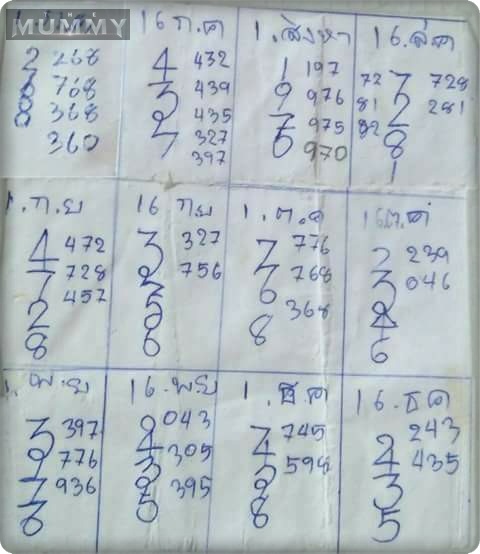 MUMMY
2 268
768
8 368
360
16 ก.ค
4 432
3 439
2 435
7 327
397
1. สิงหา
1 197
9 976
7 975
6 970
16. ส.ค
72 7 728
81 2 281
82 8
1
1. ก.ย
4 472
7 728
2 457
8
16 ก.ย
3 327
2 756
5
6
1. ต.ค
7 776
7 768
6 368
8
16 ต.ค
2 239
3 046
4
6
1. พ.ย
3 397
9 776
7 936
8
16. พ.ย
043
4 305
3 395
5
1. ธ.ค
7 745
5 598
2
8
16. ธ.ค
2 243
4 435
3
5